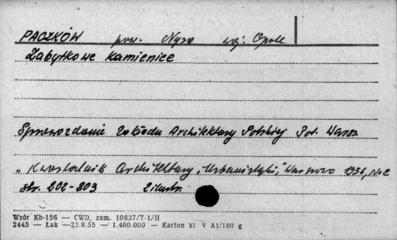 PACZKÓW pow. Nysa woj. Opole
Zabytkowe kamienice
Sprawozdanie Zakładu Architektury Polskiej Pol. Warsz.
„Kwartalnik Architektury i Urbanistyki", Warszawa
str. 202-203
Wzór Kb-156 — CWD, zam. 10837/T-1/II
2445 — Łak —23.8.55 — 1.460.000 — Karton kl V A1/180 g